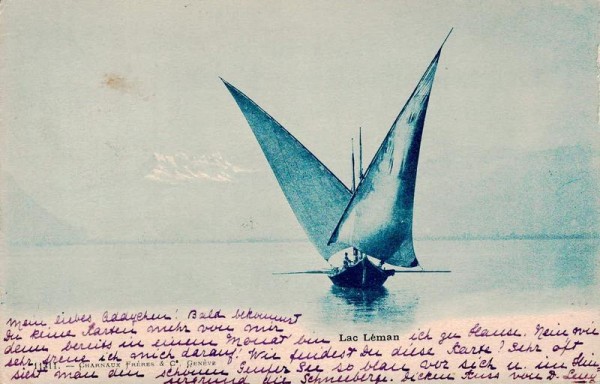 Mein liebes Addychen! Bald bekommst
Du keine Karten mehr von mir
Lac Léman
denn bereits in einem Monat bin ich zu Hause. Nein wie
11211. — CHARNAUX FRÈRES & Cᵒ GENÈVE
sehr freue ich mich darauf! Wie findest Du diese Karte? Sehr oft
sieht man den schönen Genfer See so blau vor sich u. im Hin-
tergrund die Schneeberge. Dicken Kuss von D.